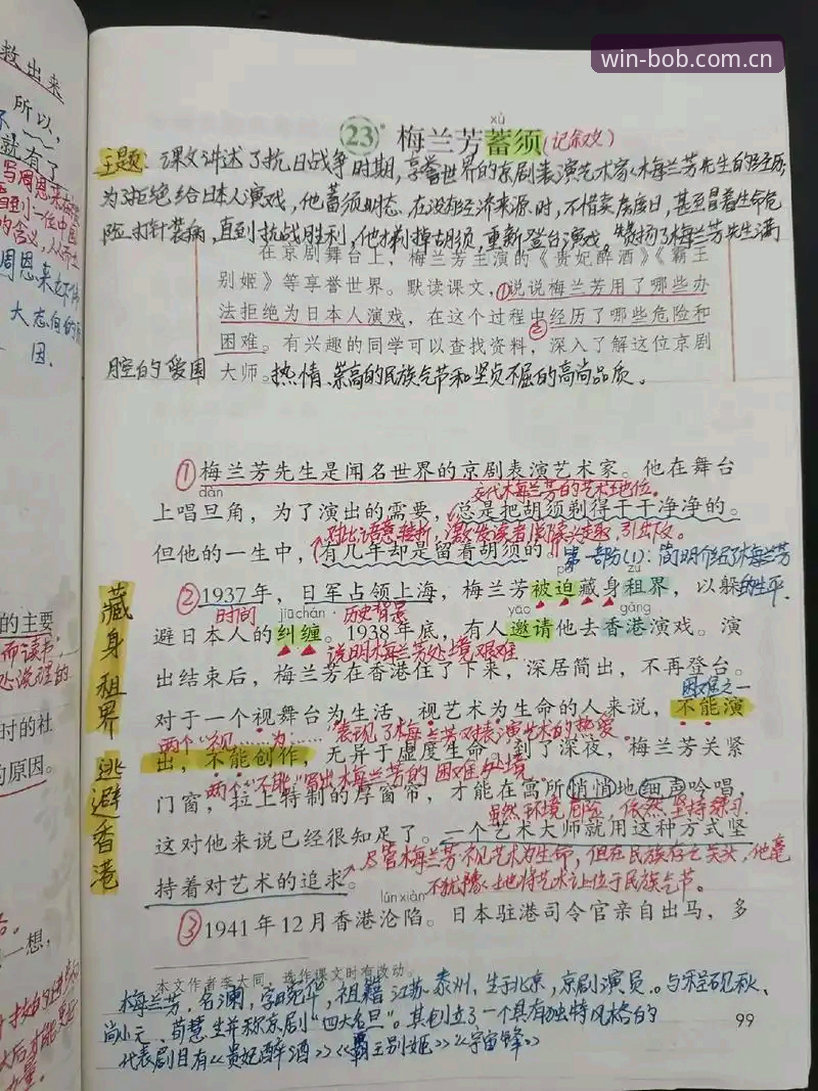 win-bob.com.cn
救出来
所以,
就有了
xù
23* 梅兰芳蓄须(记叙文)
主题: 课文讲述了抗日战争时期,享誉世界的京剧表演艺术家梅兰芳先生的经历,
为了拒绝给日本人演戏,他蓄须明志.在没有经济来源时,不惜卖房度日,甚至冒着生命危
险打针装病,直到抗战胜利,他才剃掉胡须,重新登台演戏。赞扬了梅兰芳先生满
在京剧舞台上,梅兰芳主演的《贵妃醉酒》《霸王
别姬》等享誉世界。默读课文,①说说梅兰芳用了哪些办
法拒绝为日本人演戏,在这个过程中②经历了哪些危险和
困难。有兴趣的同学可以查找资料,深入了解这位京剧
大师。
腔的爱国热情、崇高的民族气节和坚贞不屈的高尚品质。
①梅兰芳先生是闻名世界的京剧表演艺术家。他在舞台
dàn
交代梅兰芳的艺术地位。
上唱旦角,为了演出的需要,总是把胡须剃得干干净净的。
但他的一生中,有几年却是留着胡须的。
第一部分(1):简明介绍了梅兰芳
的生平.
pò zū
②1937年,日军占领上海,梅兰芳被迫藏身租界,以躲
时间 jiū chán 历史背景 yāo gǎng
避日本人的纠缠。1938年底,有人邀请他去香港演戏。演
说明梅兰芳处境艰难
出结束后,梅兰芳在香港住了下来,深居简出,不再登台。
困难之一
对于一个视舞台为生活、视艺术为生命的人来说,不能演
两个“视……为……”表现了梅兰芳对表演艺术的热爱
出,不能创作,无异于虚度生命。到了深夜,梅兰芳关紧
两个“不能”写出梅兰芳的困难处境
门窗,拉上特制的厚窗帘,才能在寓所悄悄地细声吟唱,
虽然环境危险,依然坚持练习.
这对他来说已经很知足了。一个艺术大师就用这种方式坚
尽管梅兰芳视艺术为生命,但在民族存亡关头,他毫
持着对艺术的追求。
不犹豫地将艺术让位于民族气节。
lún xiàn
③1941年12月香港沦陷。日本驻港司令官亲自出马,多
藏身租界 逃避香港
本文作者李大同,选作课文时有改动。
梅兰芳,名澜,字畹华,祖籍江苏泰州,生于北京,京剧演员。与程砚秋、
尚小云、荀慧生并称京剧“四大名旦”。其创立了一个具有独特风格的
代表剧目有《贵妃醉酒》《霸王别姬》《宇宙锋》
99